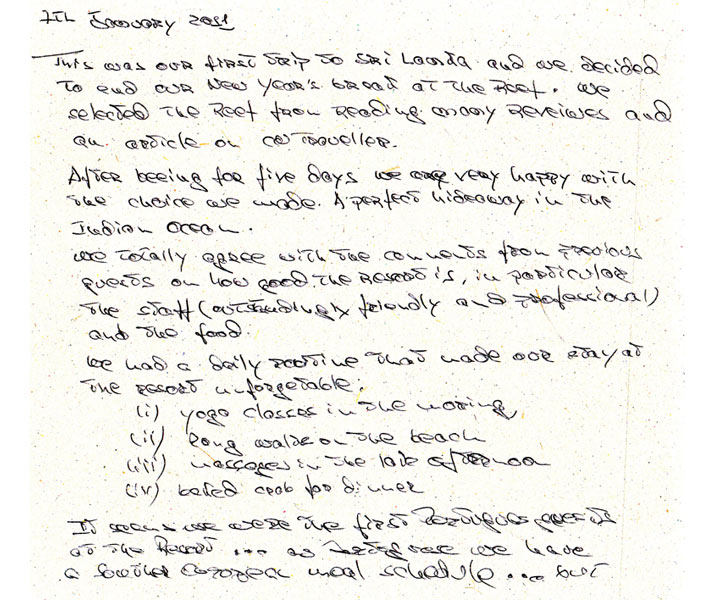 7th January 2011
This was our first trip to Sri Lanka and we decided
to end our New Year's break at the Reef. We
selected the Reef from reading many reveiwes and
an article on CN Traveller.
After beeing for five days we are very happy with
the choice we made. A perfect hideaway in the
Indian Ocean.
We totally agree with the comments from previous
guests on how good the Resort is, in particular
the staff (outstandingly friendly and professional)
and the food.
We had a daily routine that made our stay at
the resort unforgetable:
(i) yoga classes in the morning
(ii) long walks on the beach
(iii) massages in the late afternoon
(iv) baked crab for dinner
It seems we were the first Portugues guests
at the Resort ... as we have
a Southern European meal schedule ... but